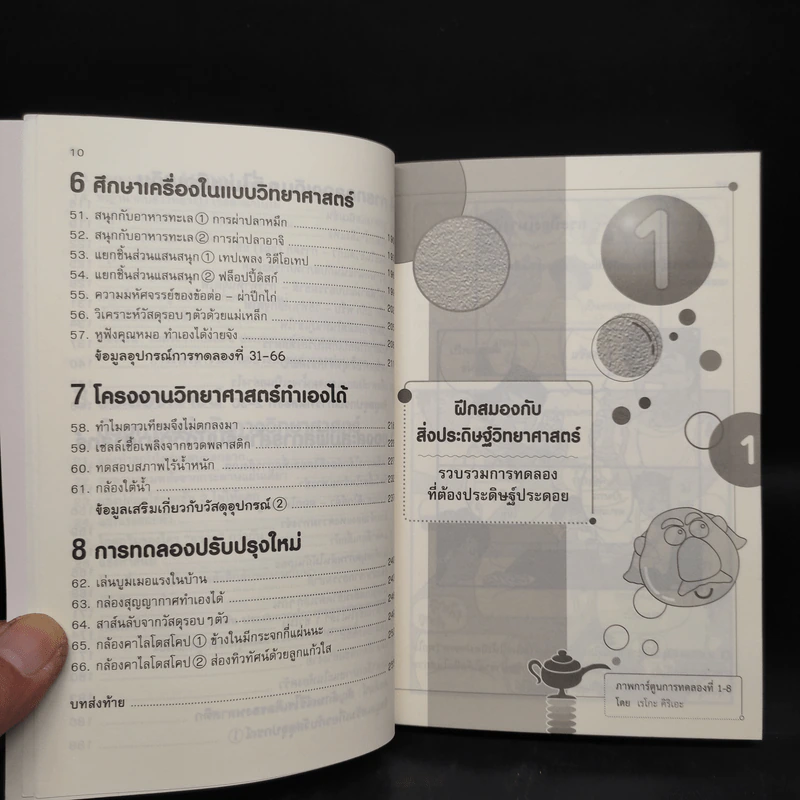 10
6 ศึกษาเครื่องในแบบวิทยาศาสตร์
51. สนุกกับอาหารทะเล ① การผ่าปลาหมึก
52. สนุกกับอาหารทะเล ② การผ่าปลาอาจิ
53. แยกชิ้นส่วนแสนสนุก ① เทปเพลง วิดีโอเทป
54. แยกชิ้นส่วนแสนสนุก ② ฟล็อปปี้ดิสก์
55. ความมหัศจรรย์ของข้อต่อ – ผ่าปีกไก่
56. วิเคราะห์วัสดุรอบๆตัวด้วยแม่เหล็ก
57. หูฟังคุณหมอ ทำเองได้ง่ายจัง
ข้อมูลอุปกรณ์การทดลองที่ 31-66
7 โครงงานวิทยาศาสตร์ทำเองได้
58. ทำไมดาวเทียมจึงไม่ตกลงมา
59. เซลล์เชื้อเพลิงจากขวดพลาสติก
60. ทดสอบสภาพไร้น้ำหนัก
61. กล้องใต้น้ำ
ข้อมูลเสริมเกี่ยวกับวัสดุอุปกรณ์ ②
8 การทดลองปรับปรุงใหม่
62. เล่นบูมเมอแรงในบ้าน
63. กล่องสุญญากาศทำเองได้
64. สาส์นลับจากวัสดุรอบๆตัว
65. กล้องคาไลโดสโคป ① ข้างในมีกระจกกี่แผ่นนะ
66. กล้องคาไลโดสโคป ② ส่องทิวทัศน์ด้วยลูกแก้วใส
บทส่งท้าย
1
ฝึกสมองกับ
สิ่งประดิษฐ์วิทยาศาสตร์
รวบรวมการทดลอง
ที่ต้องประดิษฐ์ประดอย
1
ภาพการ์ตูนการทดลองที่ 1-8
โดย เรโกะ คิริเอะ